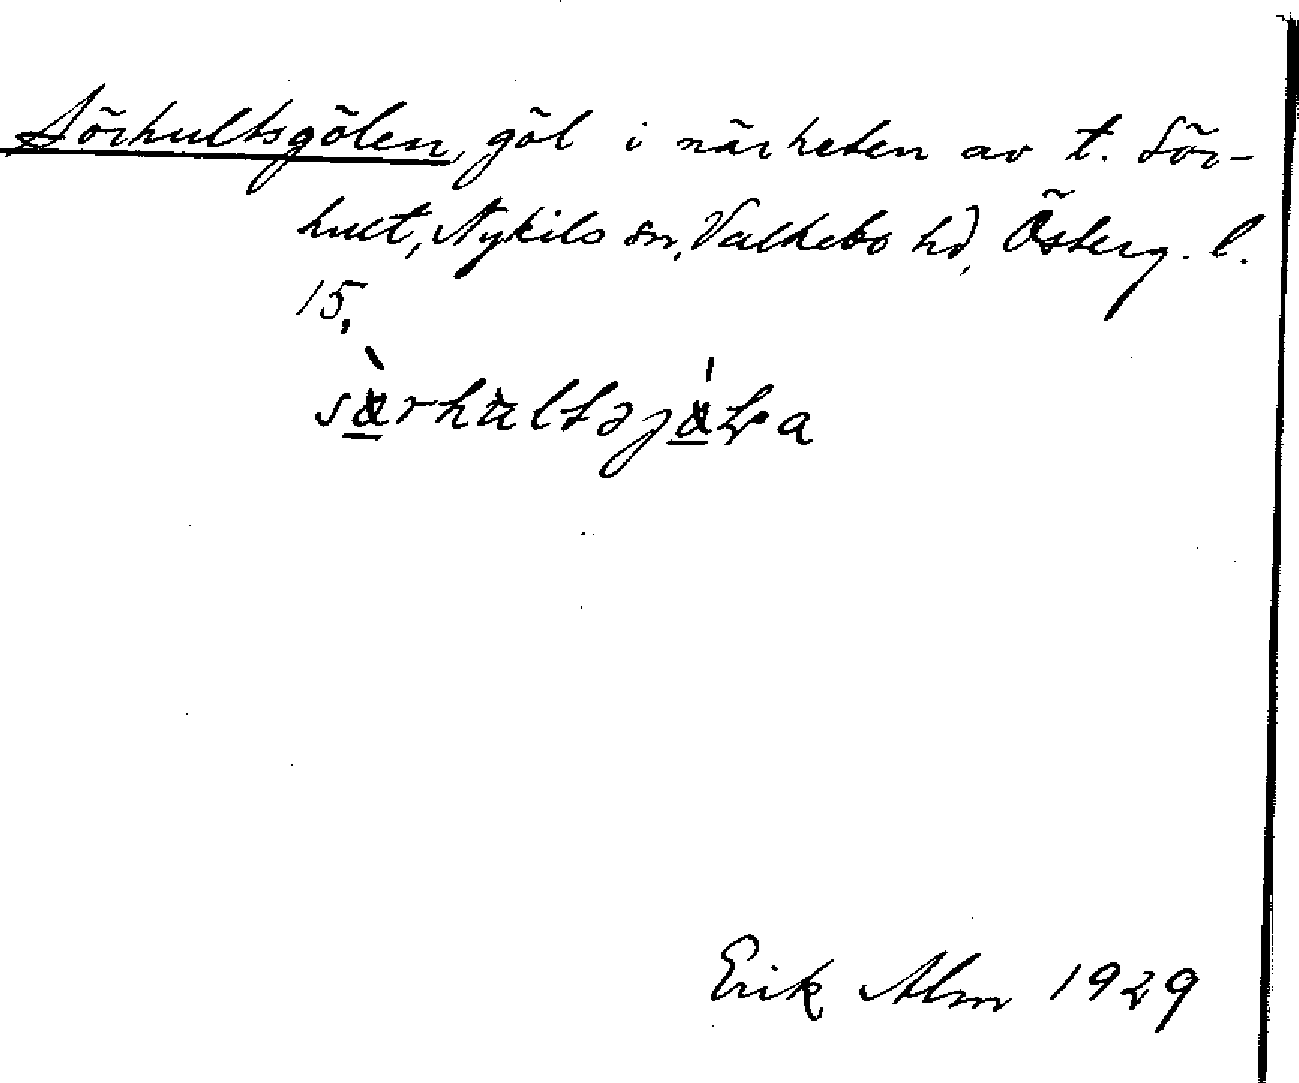 Sörhultsgölen, göl i närheten av t. Sör-
hult, Nykils sn, Valkebo hd, Österg. l.
15.
Erik Alm 1929